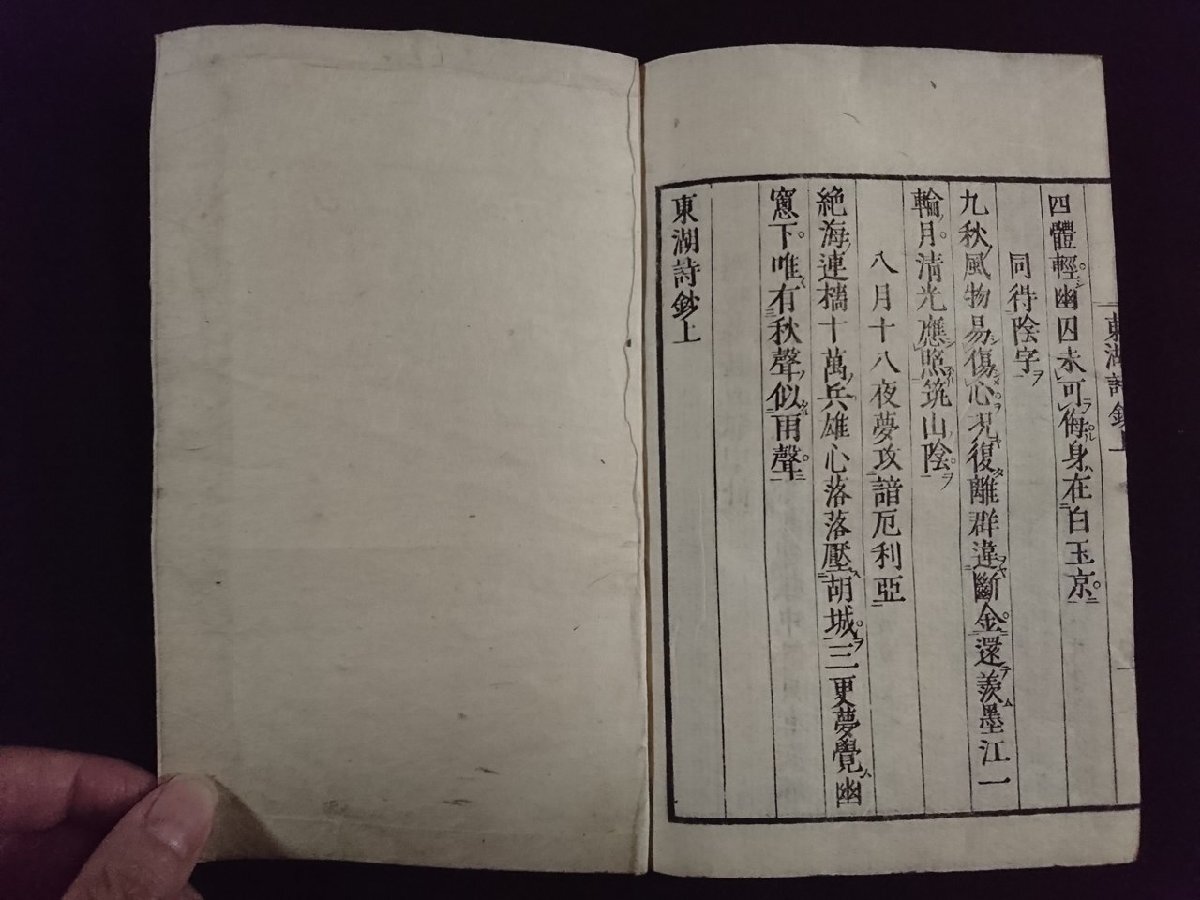 東湖詩鈔上
四體輕幽囚未可侮身在白玉京
同得陰字
九秋風物易傷心况復離群違斷金還羨墨江一
輪月清光應照筑山陰
八月十八夜夢攻諳厄利亞
絶海連檣十萬兵雄心落落壓胡城三更夢覺幽
窻下唯有秋聲似雨聲
東湖詩鈔上